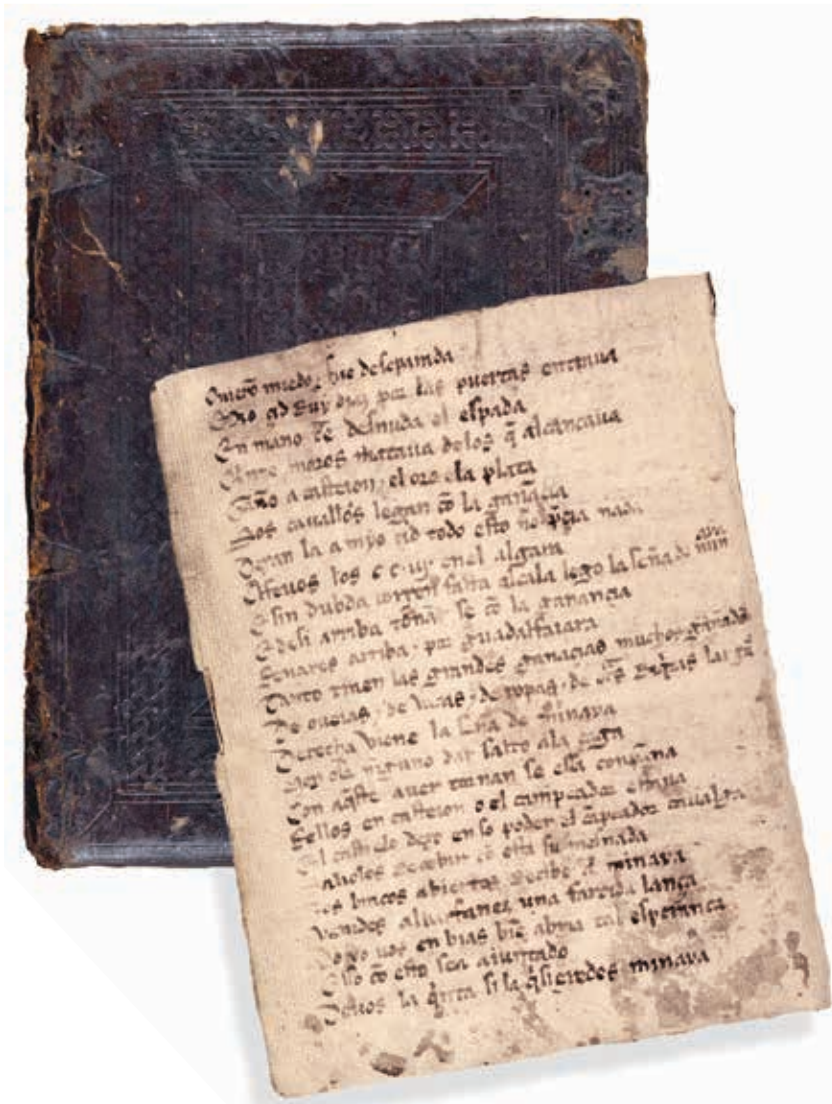 Ouierõ miedo ⁊ fue deseparada
Myo çid Ruy diaz por las puertas entraua
En mano tͤ desnuda el espada
Quinze moros mataua delos q̃ alcançaua
Gaño a casteion ⁊ el oro ela plata
Sos cauallos legan cõ la ganãçia
Dexan la a myo çid todo esto nõ preçia nada
Afeuos los c c iij enel algara
E sin dubda corren fasta alcala lego la seña de minaya
E desi arriba tornã se cõ la ganançia
Fenares arriba ⁊ por guadalfaiara
Tanto traen las grandes ganãçias muchos gañados
De oueias ⁊ de vacas ⁊ de ropas ⁊ de
Derecha viene la seña de minaya
dar salto ala çaga
Con aq̃ste auer tornan se essa conpaña
Fellos en casteion o el campeador estaua
El castielo dexo en so poder el cãpeador caualga
Saliolos reçebir cõ esta su mesnada
Los braços abiertos reçibe a minaya
Venides albarfanez una fardida lança
Do yo uos enbias biẽ abria tal esperança
Esso cõ esto sea aiuntado
Douos la q̃nta si la q̃sieredes minaya